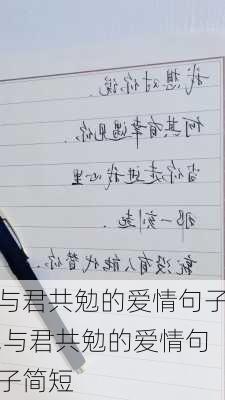 我想对你说，
何其有幸遇见你.
当你走进我心里
那一刻起.
就没有人能代替你..
与君共勉的爱情句子
,与君共勉的爱情句
子简短